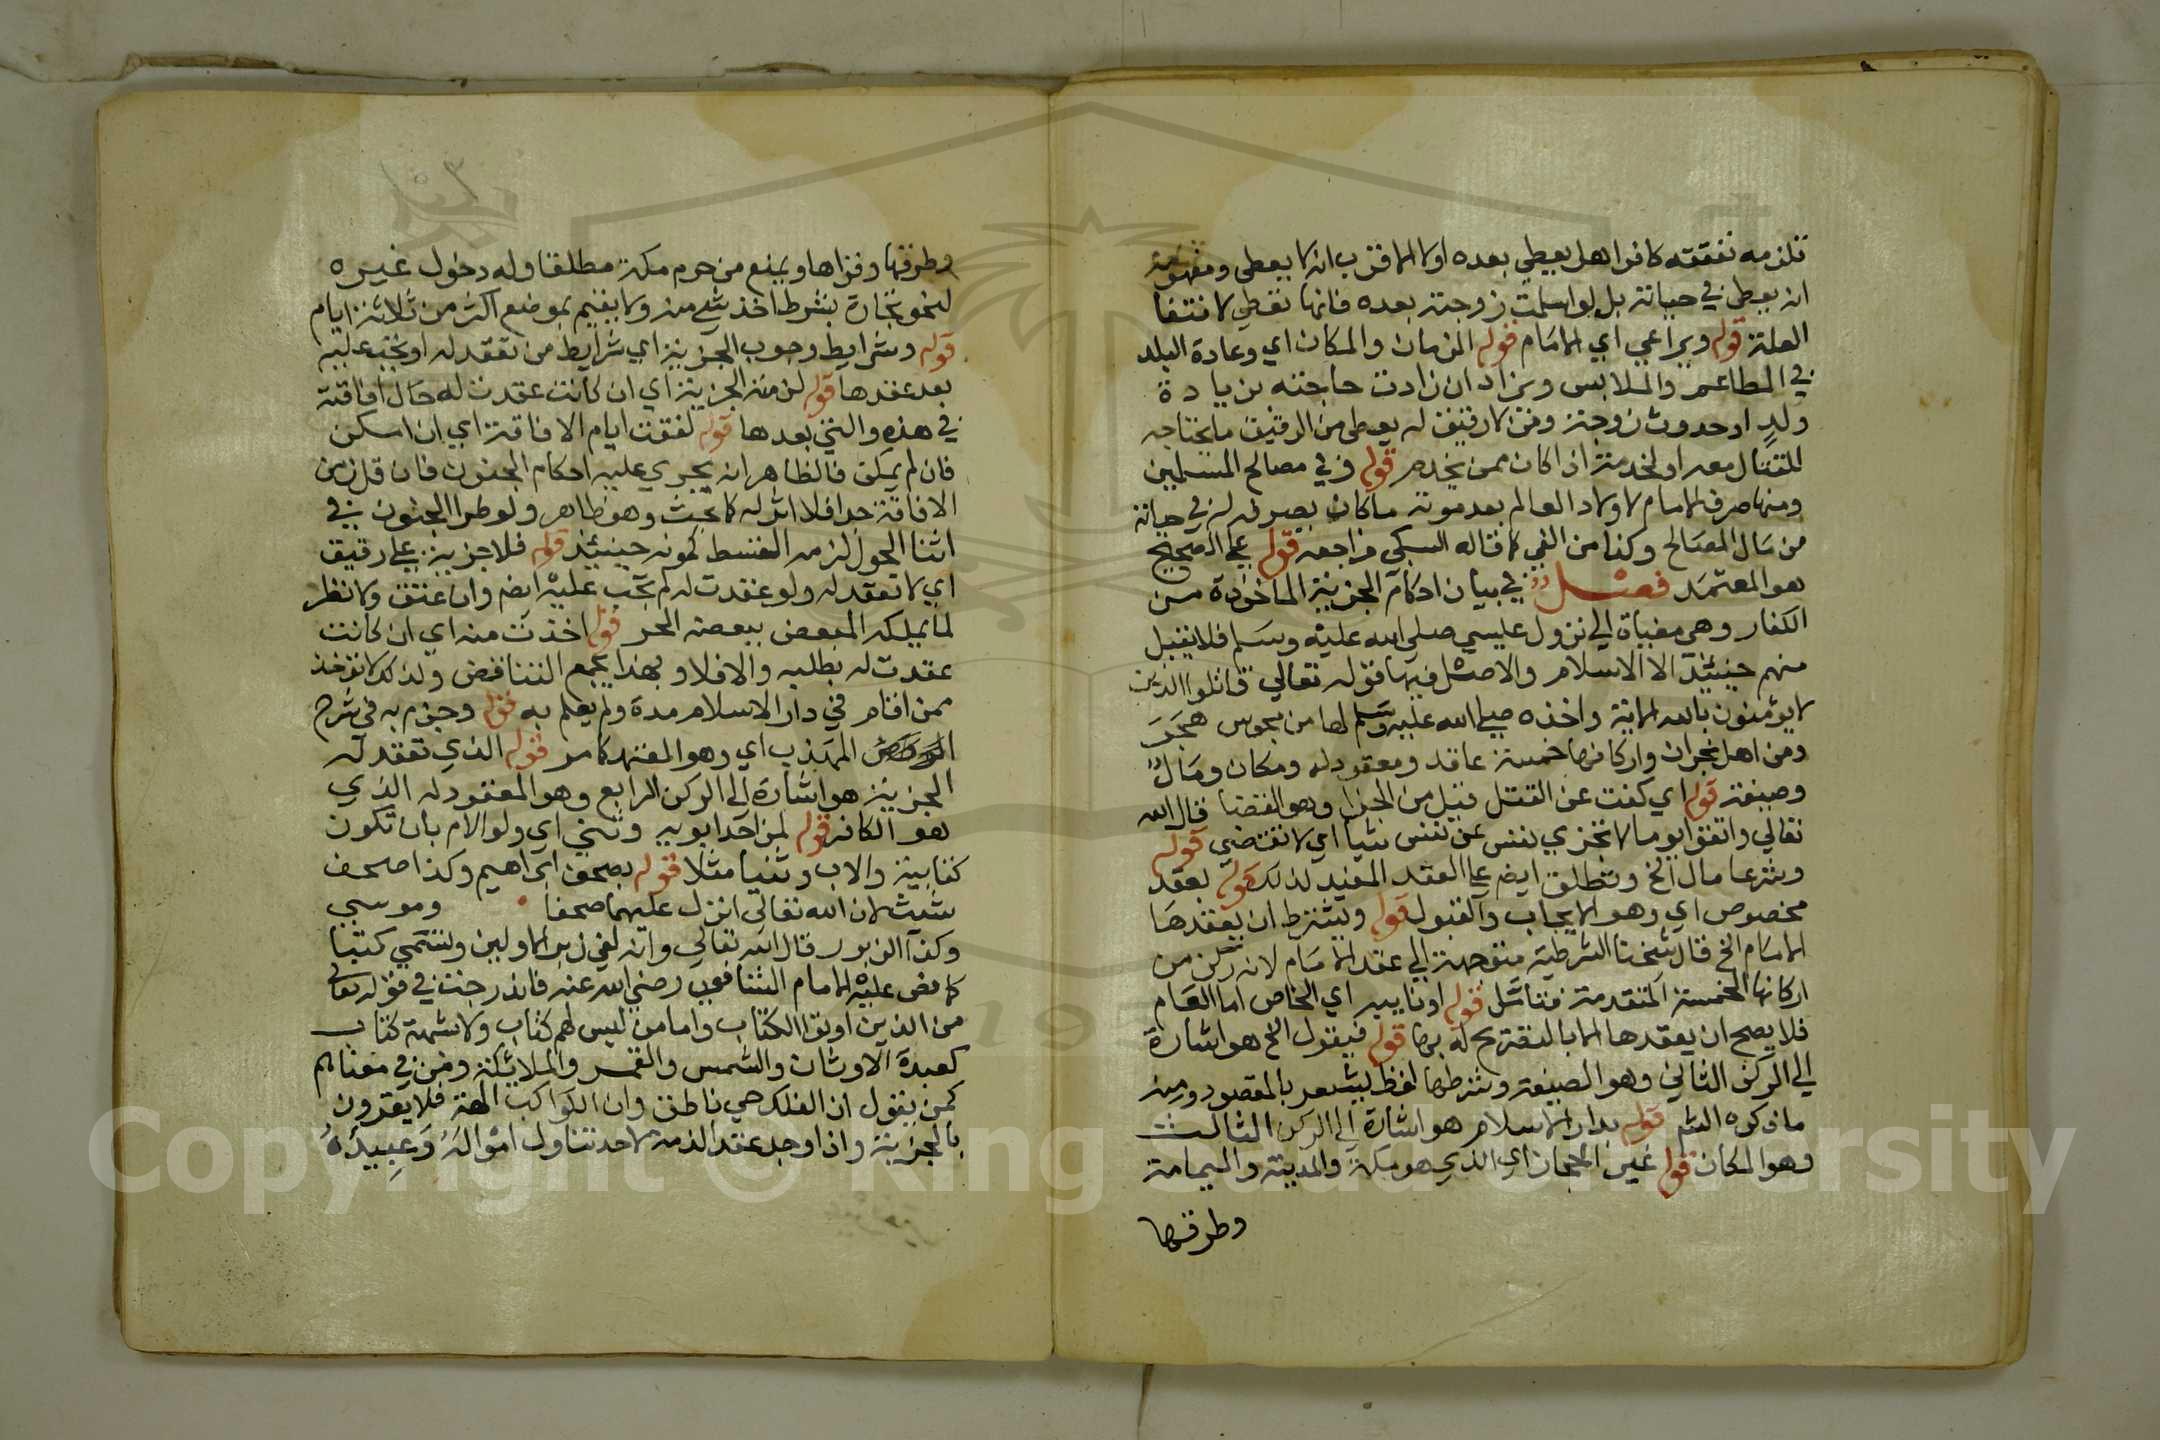 تلزمه نفقته كافرا هل يعطي بعده اولا الاقرب انه لا يعطى ومفهومه
ان يعطى في حياته بل لو اسلمت زوجته بعده فانها تعطى لانتفا
العلة قوله ويراعي اي الامام قوله الزمان والمكان اي وعادة البلد
في المطاعم والملابس ويزاد ان زادت حاجته بزيادة
ولد او حدوث زوجة ومن لا رقيق له يعطى من الرقيق ما يحتاجه
للقتال معه او لخدمته اذا كان ممن يخدم قوله وفي مصالح المسلمين
ومنها صرف الامام لاولاد العالم بعد موته ما كان يصرفه له في حياته
من مال المصالح وكذا من الفي كما قاله السبكي فراجعه قوله على الصحيح
هو المعتمد فصل في بيان احكام الجزية الماخوذة من
الكفار وهي مغياة الي نزول عيسي صلي الله عليه وسلم فلا يقبل
منهم حينئذ الا الاسلام والاصل فيها قوله تعالي قاتلوا الذين
لا يؤمنون بالله الاية واخذه صلي الله عليه وسلم لها من مجوس هجر
ومن اهل نجران واركانها خمسة عاقد ومعقود له ومكان ومال
وصيغة قوله اي كفت عن القتل قيل من الجزا وهو القضا قال الله
تعالي واتقوا يوما لا تجزي نفس عن نفس شيا اي لا تقضي قوله
وشرعا مال الخ وتطلق ايضا علي العقد المفيد لذلك قوله بعقد
مخصوص اي وهو الايجاب والقبول قوله ويشترط ان يعقدها
الامام الخ قال شيخنا الشرطية متوجهة الي عقد الامام لانه ركن من
اركانها الخمسة المتقدمة فتامل قوله او نايبه اي الخاص اما العام
فلا يصح ان يعقدها الا بالتصريح له بها قوله فيقول الخ هو اشارة
الي الركن الثاني وهو الصيغة وشرطها لفظ يشعر بالمقصود ومنه
ما ذكره الشم قوله بدار الاسلام هو اشارة الي الركن الثالث
وهو المكان قوله غير الحجاز اي الذي هو مكة والمدينة واليمامة
وطرقها
وطرقها وقراها ويمنع من حرم مكة مطلقا وله دخول غيره
لنحو تجارة بشرط اخذ شي منه ولا يقيم بموضع اكثر من ثلاثة ايام
قوله وشرايط وجوب الجزية اي شرايط من تعقد له او تجب عليه
بعد عقدها قوله لزمته الجزية اي ان كانت عقدت له حال افاقته
في هذه والتي بعدها قوله لفقت ايام الافاقة اي ان امكن
فان لم يمكن فالظاهر انه يجري عليه احكام الجنون فان قل زمن
الافاقة جدا فلا اثر له كما بحث وهو ظاهر ولو طرا الجنون في
اثنا الحول لزمه القسط كموته حينئذ قوله فلا جزية علي رقيق
اي لا تعقد له ولو عقدت له لم تجب عليه ايضا وان عتق ولا نظر
لما يملكه المبعض ببعضه الحر قوله اخذت منه اي ان كانت
عقدت له بطلبه والا فلا وبهذا يجمع التناقض ولذلك لا تؤخذ
ممن اقام في دار الاسلام مدة ولم يعلم به قوله وجزم به في شرح
المهذب اي وهو المعتمد كما مر قوله الذي تعقد له
الجزية هو اشارة الي الركن الرابع وهو المعقود له الذي
هو الكافر قوله لمن احد ابويه وثني اي ولو الام بان تكون
كتابية والاب وثنيا مثلا قوله بصحف ابراهيم وكذا صحف
شيث لان الله تعالى انزل عليهما صحفا وموسي
وكذا الزبور قال الله تعالي وانه لفي زبر الاولين وتسمي كتبا
كما نص عليه الامام الشافعي رضي الله عنه فاندرجت في قوله تعالى
من الذين اوتوا الكتاب واما من ليس لهم كتاب ولا شبهة كتاب
كعبدة الاوثان والشمس والقمر والملائكة ومن في معناهم
كمن يقول ان الفلك حي ناطق وان الكواكب الهة فلا يقرون
بالجزية واذا وجد عقد الذمة لاحد تناول امواله وعبيده